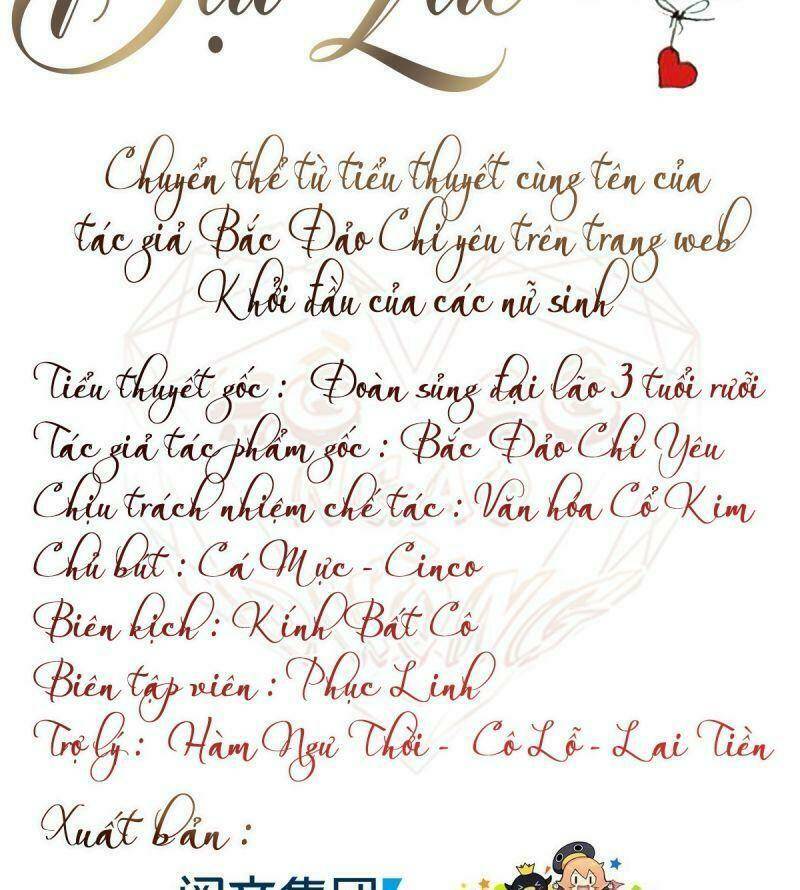 Đại Lão
Chuyển thể từ tiểu thuyết cùng tên của
tác giả Bắc Đảo Chi yêu trên trang web
Khởi đầu của các nữ sinh
Tiểu thuyết gốc : Đoàn sủng đại lão 3 tuổi rưỡi
Tác giả tác phẩm gốc : Bắc Đảo Chi Yêu
Chịu trách nhiệm chế tác : Văn hóa Cổ Kim
Chủ bút : Cá Mực - Cinco
Biên kịch : Kính Bất Cô
Biên tập viên : Phục Linh
Trợ lý : Hàm Ngư Thời - Cô Lỗ - Lai Tiền
Xuất bản :
阅文集团